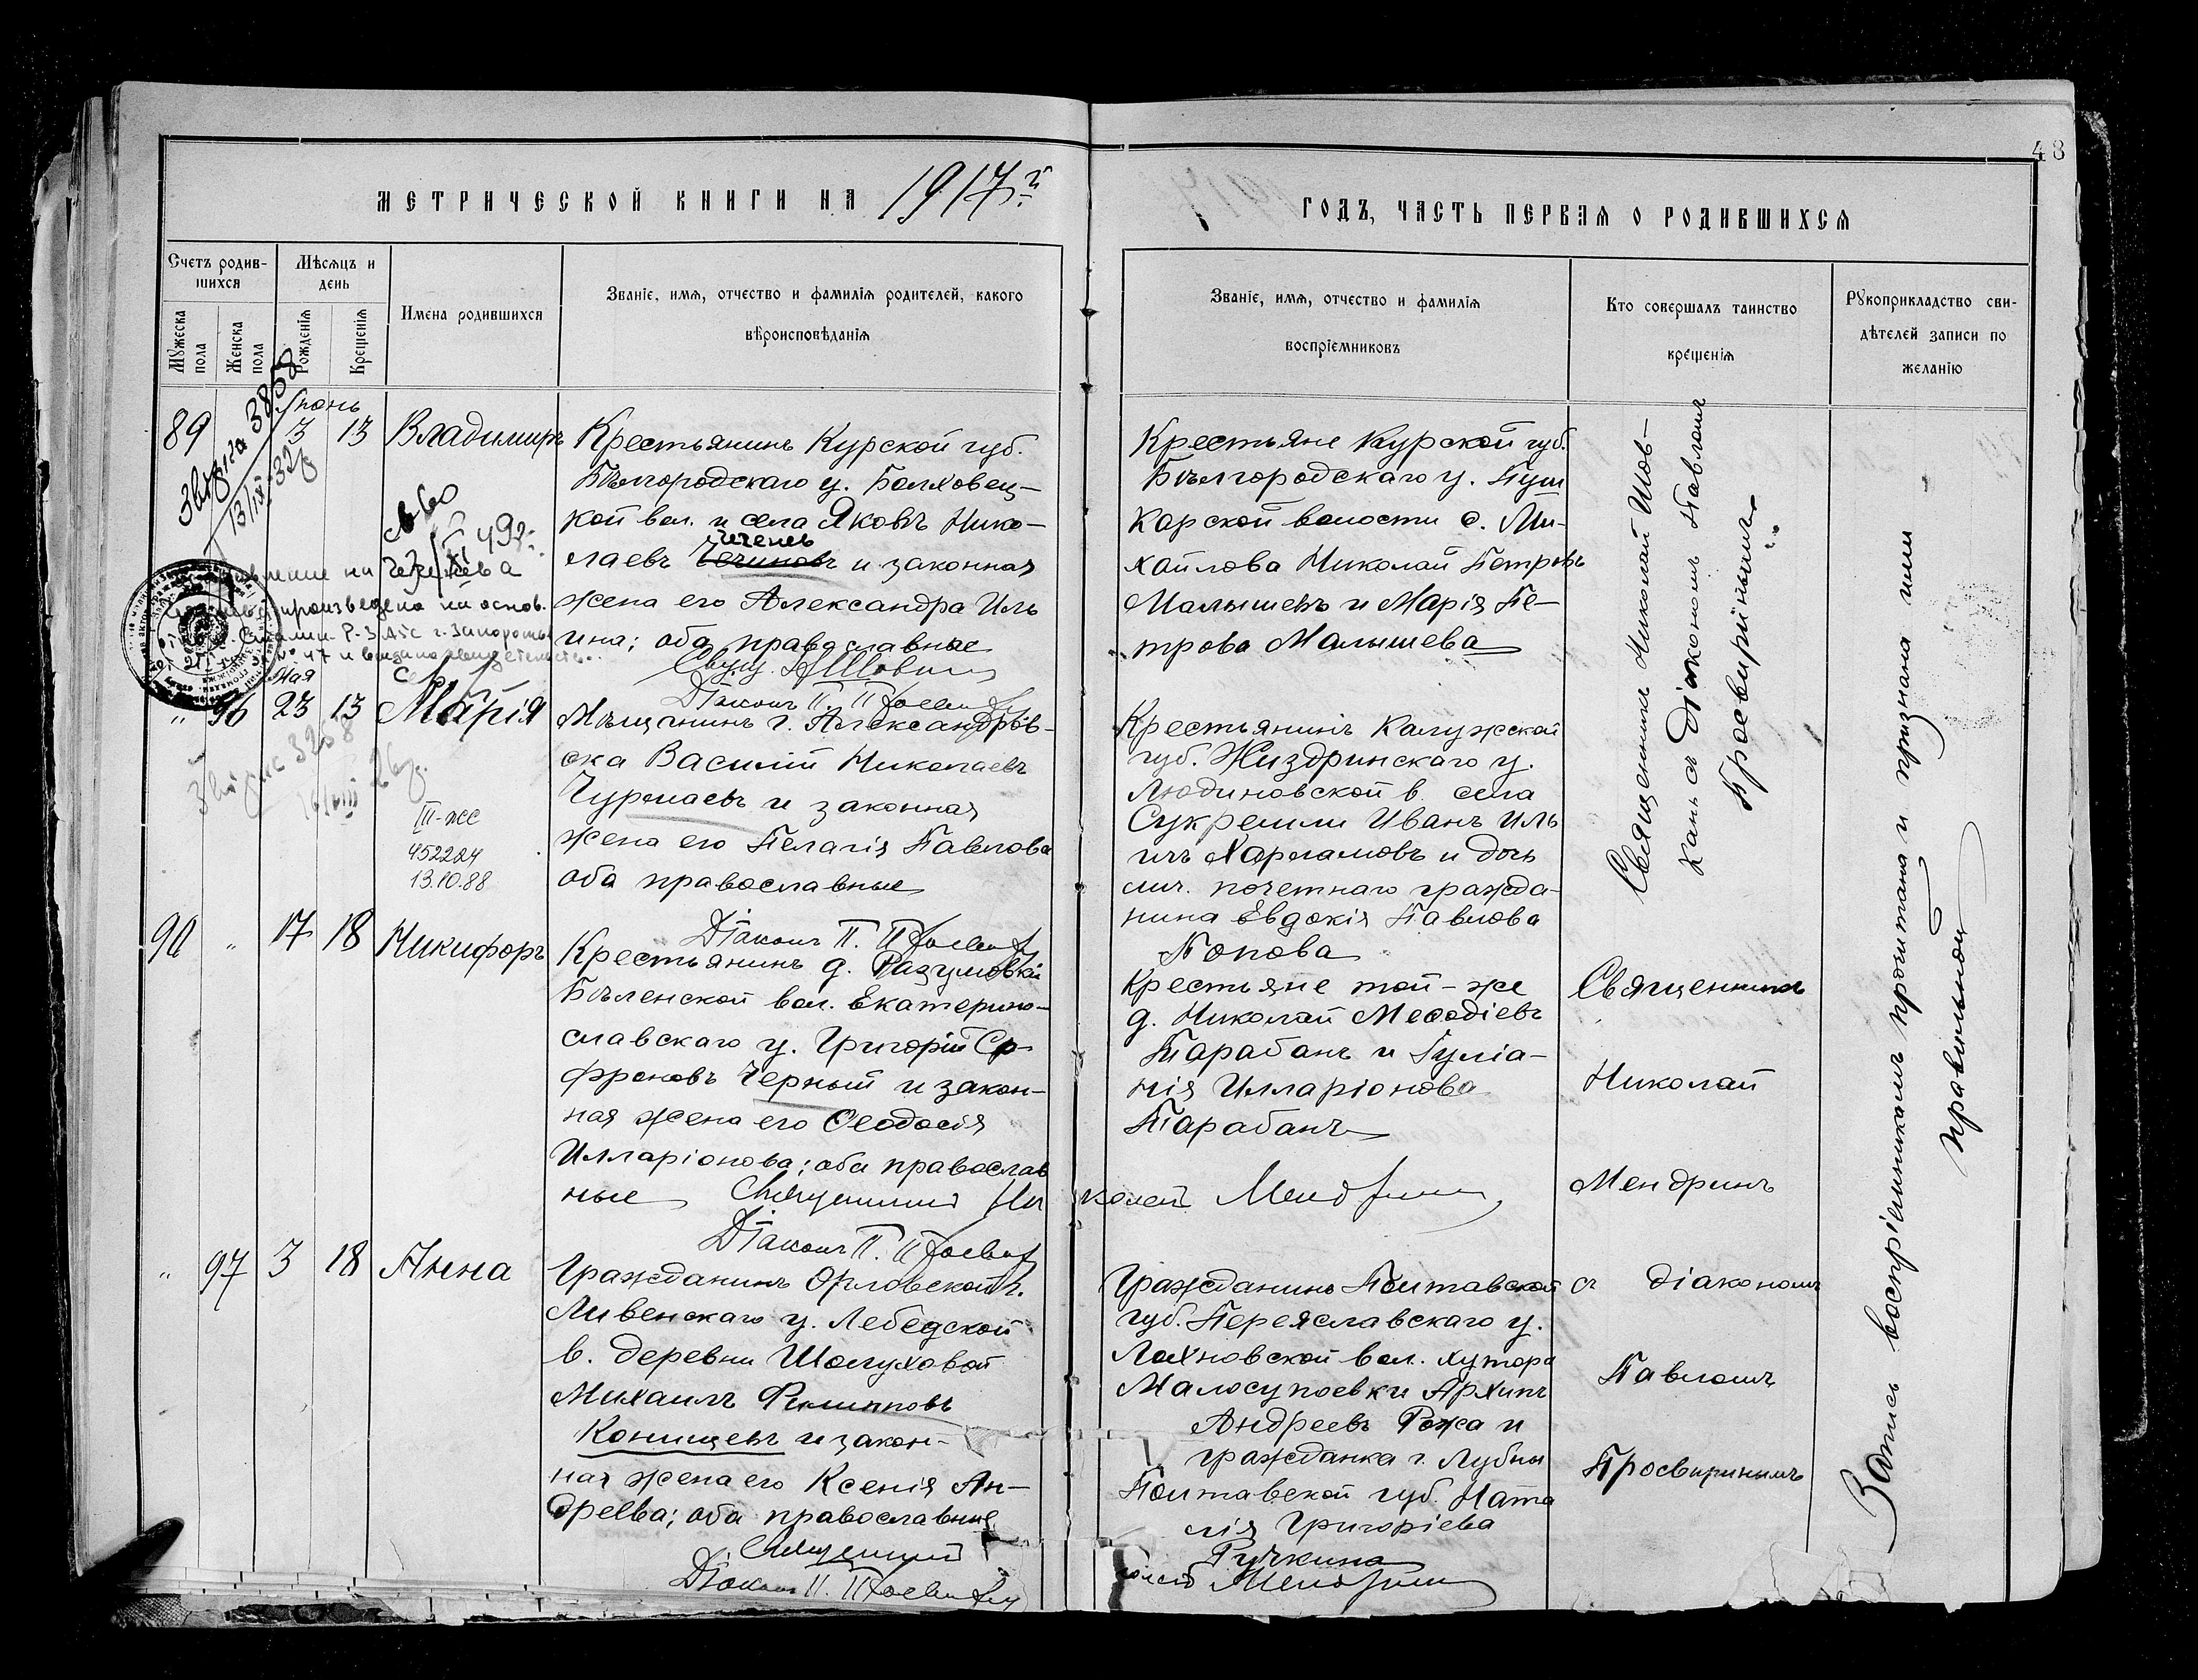 48
МЕТРИЧЕСКОЙ КНИГИ НА 1917 й
ГОДЪ, ЧАСТЬ ПЕРВАЯ О РОДИВШИХСЯ
Счетъ родив-
шихся
Мужеска пола
Женска пола
Мѣсяцъ и
день
Рожденія
Крещенія
Имена родившихся
Званіе, имя, отчество и фамилія родителей, какого
вѣроисповѣданія
Званіе, имя, отчество и фамилія
воспріемниковъ
Кто совершалъ таинство
крещенія
Рукоприкладство сви-
дѣтелей записи по
желанію
Іюнь
89 3 13 Владимиръ
Крестьянинъ Курской губ.
Бѣлгородскаго у. Болховец-
кой вол. и села Яковъ Нико-
Чечень
лаевъ Чечиновъ и законная
жена его Александра Иль
ина; оба православные
Діаконъ П.
Крестьяне Курской губ.
Бѣлгородскаго у. Пуш
карской волости с. Ми-
хайлова Николай Петровъ
Малышевъ и Марія Пе-
трова Малышева
Священникъ Николай Шов-
кань съ діакономъ Павломъ
Просвирнинымъ
3858
13/IX 32
произведено на основ.
г. Запорожья
Мая
" 96 23 13 Марія
Мѣщанинъ г. Александров-
ска Василій Николаевъ
Чурмаевъ и законная
жена его Пелагія Павлова
оба православные
Діаконъ П.
III-жс
452224
13.10.88
Крестьянинъ Калужской
губ. Жиздринскаго у.
Людиновской в. села
Сукремли Иванъ Иль
ичъ Харламовъ и дочь
лич. почетнаго гражда-
нина Евдокія Павлова
Попова
90 " 17 18 Никифоръ
Крестьянинъ д. Разумовки
Бѣленской вол. Екатерино-
славскаго у. Григорій Со-
фроновъ Черный и закон-
ная жена его Ѳеодосія
Илларіонова; оба православ
ные Священникъ Николай Мендринъ
Діаконъ П.
Крестьяне той-же
д. Николай Меѳодіевъ
Тарабанъ и Іуліа-
нія Илларіонова
Тарабанъ
Священникъ
Николай
Мендринъ
" 97 3 18 Анна
Гражданинъ Орловской г.
Ливенскаго у. Лебедской
в. деревни Шолуховой
Михаилъ Филипповъ
Конищевъ и закон-
ная жена его Ксенія Ан-
дреева; оба православные
Священникъ Николай Мендринъ
Діаконъ П.
Гражданинъ Полтавской
губ. Переяславскаго у.
Лохновской вол. хутора
Малосупоевки Архипъ
Андреевъ Рожа и
гражданка г. Лубны
Полтавской губ. Ната
лія Григоріева
Ручкина
съ діакономъ
Павломъ
Просвирнинымъ
Запись воспріемникамъ прочитана и признана ими
правильной